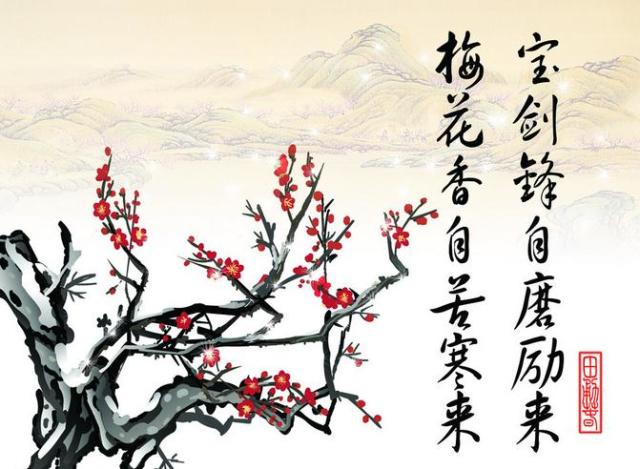 宝剑锋自磨励来
梅花香自苦寒来